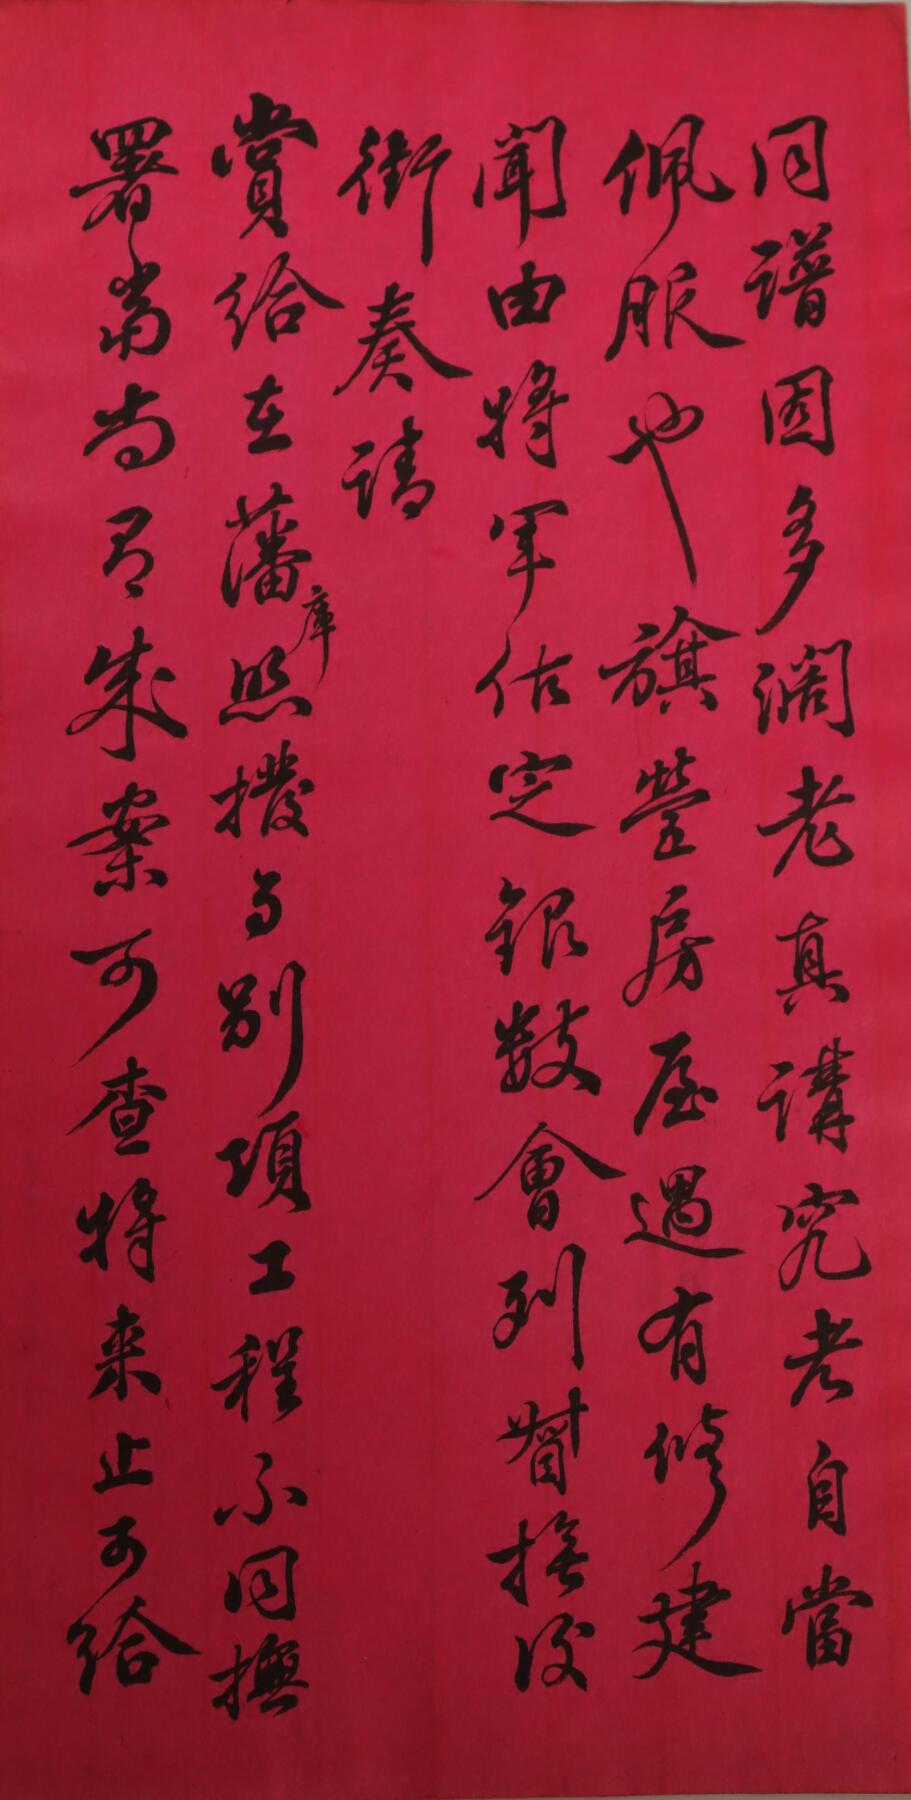 同譜固多濶老真講究者自當
佩服也旗營房屋遇有修建
聞由將軍估定銀數會列督撫後
銜奏請
賞給在藩庫照撥與別項工程不同撫
署當尚有成案可查將來止可給